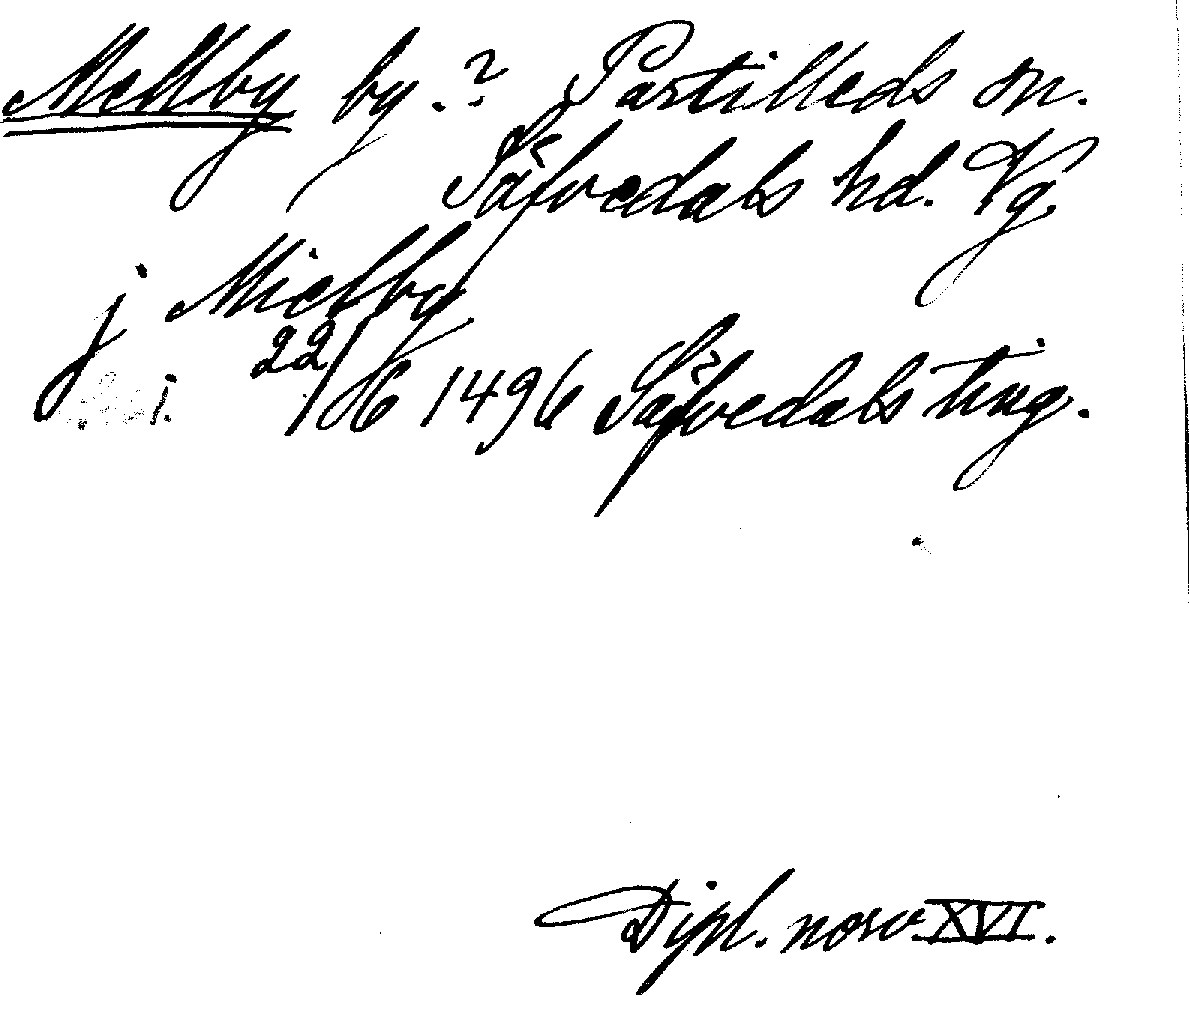 Mellby by.? Partilleds sn.
Säfvedals hd. Vg.
j Mielby
22/6 1496 Säfvedals ting.
Dipl. norv. XVI.